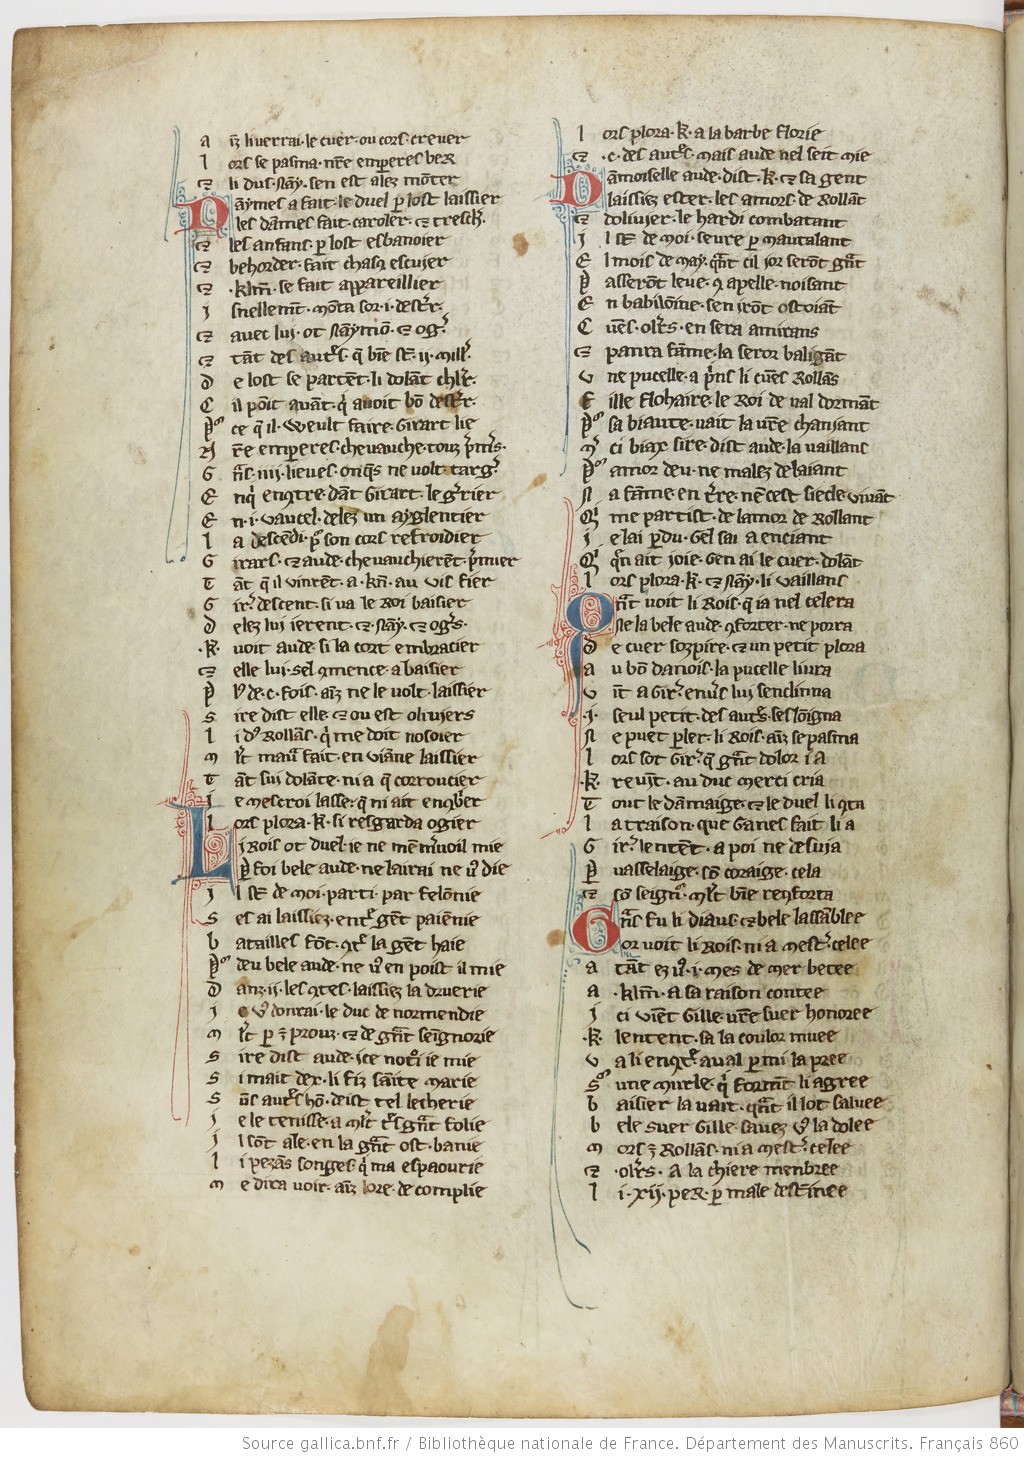 A īz li verrai · le cuer · ou cors · crever
l ors se pasma · nr̄e emperes ber
⁊ li dus · nay̅ · sen est alez mōter
Naymes a fait · le duel p̲ lost laissier
les dāmes fait · caroler · ⁊ tresch̄
⁊ les anfans · p̲ lost esbanoier
⁊ behorder · fait chasq̄ escujer
⁊ · kl̄m̄ · se fait appareillier
j snellemt̄ · mōta sor · i · destr̄
⁊ avec lui · ot naymō · ⁊ og̾
⁊ tāt des autr̄s · q̄ bīe st̄ · ij · mill̾
d e lost se partēt · li dolāt chl̄r̄
C il pōit avāt · q̾ avoit bō destr̄
P̾ ce q̄ il · weult faire · Girart lie
N r̄e emperes · chevauche · touz p̾m̄s ·
G n̄s · iiij · lieues · onq̄s ne volt · targ̾
E nq̾ enq̄tre · dāt Girart · le g̾rier
E n · i · vaucel · delez un ayglentier
l a descēdi · p̾ son cors refroidier
G irars · ⁊ aude · chevauchierēt · p̾mier
T āt q̄ il vinrēt · a · km̄ · au vis fier
G ir̾ descent · si va le Roi baisier
d elez lui ierent · ⁊ · nay̅ · ⁊ og̾s ·
· K · voit aude · si la cort embracier
⁊ elle lui · sel q̄mence · a baisier
P l̾ de · c · fois · aīz ne le volt · laissier
S ire dist elle · ⁊ ou est olivjers
l i d̾ Rollās · q̾ me doit nosoier
m l̄t mau̾ fait · en viāne laissier
T āt sui dolāte · ni a que corroucier
j e mescroi lasse · q̄ ni ait enq̄brer
l ors plora · K · si resgarda ogier
Li Rois ot duel · ie ne men m̾voil mie
P̲ foi bele aude · ne lairai ne v̾ die
j l st̄ de moi · parti · par felōnie
S es ai laissiez · entr̄ gēt paiēnie
b atailles fōt · q̄tr̄ la gēt haie
P̾ deu bele aude · ne v̾ en poist il mie
D anz · ij · les q̄tes · laissiez la druerie
j e v̾ donrai · le duc de normendie
m l̄t p̲ ē prouz · ⁊ de gn̄t seīgnorie
S ire dist aude · ice not̾i ie mie
S i mait dex · li fiz sāite marie
S ūs autr̄s hō · deist tel lecherie
j e le tenisse · a ml̄t tr̄s gn̄t folie
j l sōt ale · en la gn̄t ost · banie
l i pezās songes · q̾ ma espaourie
m e dira voir · aīz lore · de complie
l ors plora · K · a la barbe florie
⁊ · c · des autr̄s · mais aude nel seit mie
Damoiselle aude · dist · K · ⁊ sa gent
laissiez ester · les amors · de Rollāt
⁊ dolivjer · le hardi combatant
j l st̄ de moi · sevre p̲ mautalant
E l mois de may · qn̄t cil jor serōt gn̄t
P asserōt leve · q̄ apelle · noisant
E n babilōine · sen jrōt ostoiāt
C uēs · olr̄s · en sera amirans
⁊ panra fāme · la seror baligāt
v ne pucelle · a p̾ns li cuēs Rollās
F ille flohaire · le Roi de val dormāt
P̾ sa biaute · vait la vr̄e chanjant
M̾ ci biax sire · dist aude · la vaillans
P̾ amor deu · ne malez delaiant
N a fāme · en tr̄re · nē cest siecle vivāt
Q̾ me partist · de lamor de Rollant
j e lai p̲du · Gel sai a enciant
Q̾ q̾n ait joie · Gen ai le cuer · dolāt
l ors plora · K · ⁊ nay̅ · li vaillans
Qn̄t voit li Rois · q̄ ia nel celera
Ne la bele aude · q̄forter · ne porra
d e cuer sozpire · ⁊ un petit plora
a u bō danois · la pucelle livra
v īt a Gir̾ · envr̄s lui senclinna
· j · seul petit · des autr̄s · ses lōigna
N e puet p̲ler · li Rois · aīz se pasma
l ors sot Gir̾ · q̄ gn̄t dolor i a
· K · revīt · au duc merci cria
T out le dāmaige · ⁊ le duel li q̄ta
l a traison · que Ganes fait li a
G ir̾ lentēt · a poi ne desvja
P̲ vasselaige · sō coraige · cela
⁊ sō seign̾ · ml̄t bīe renforta
Grās fu li diaus · ⁊ bele lassāblee
or voit li Rois · ni a mestr̄ · celee
a tāt ez v̾ · i · mes de mer betee
a · kl̄m̄ · a sa raison contee
j ci viēt Gille · vr̄e suer honoree
· K · lentent · sa la coulor muee
v a li enq̄tr̄ · aval p̲ mi la pree
S̾ une murle · q̾ formt̄ li agree
b aisier la vait · qn̄t il lot saluee
b ele suer Gille · savez v̾ la dolee
m ors ē Rollās · ni a mestr̄ · celee
⁊ · olr̄s · a la chiere menbree
l i · xij · per · p̲ male destinee
Source gallica.bnf.fr / Bibliothèque nationale de France. Département des Manuscrits. Français 860